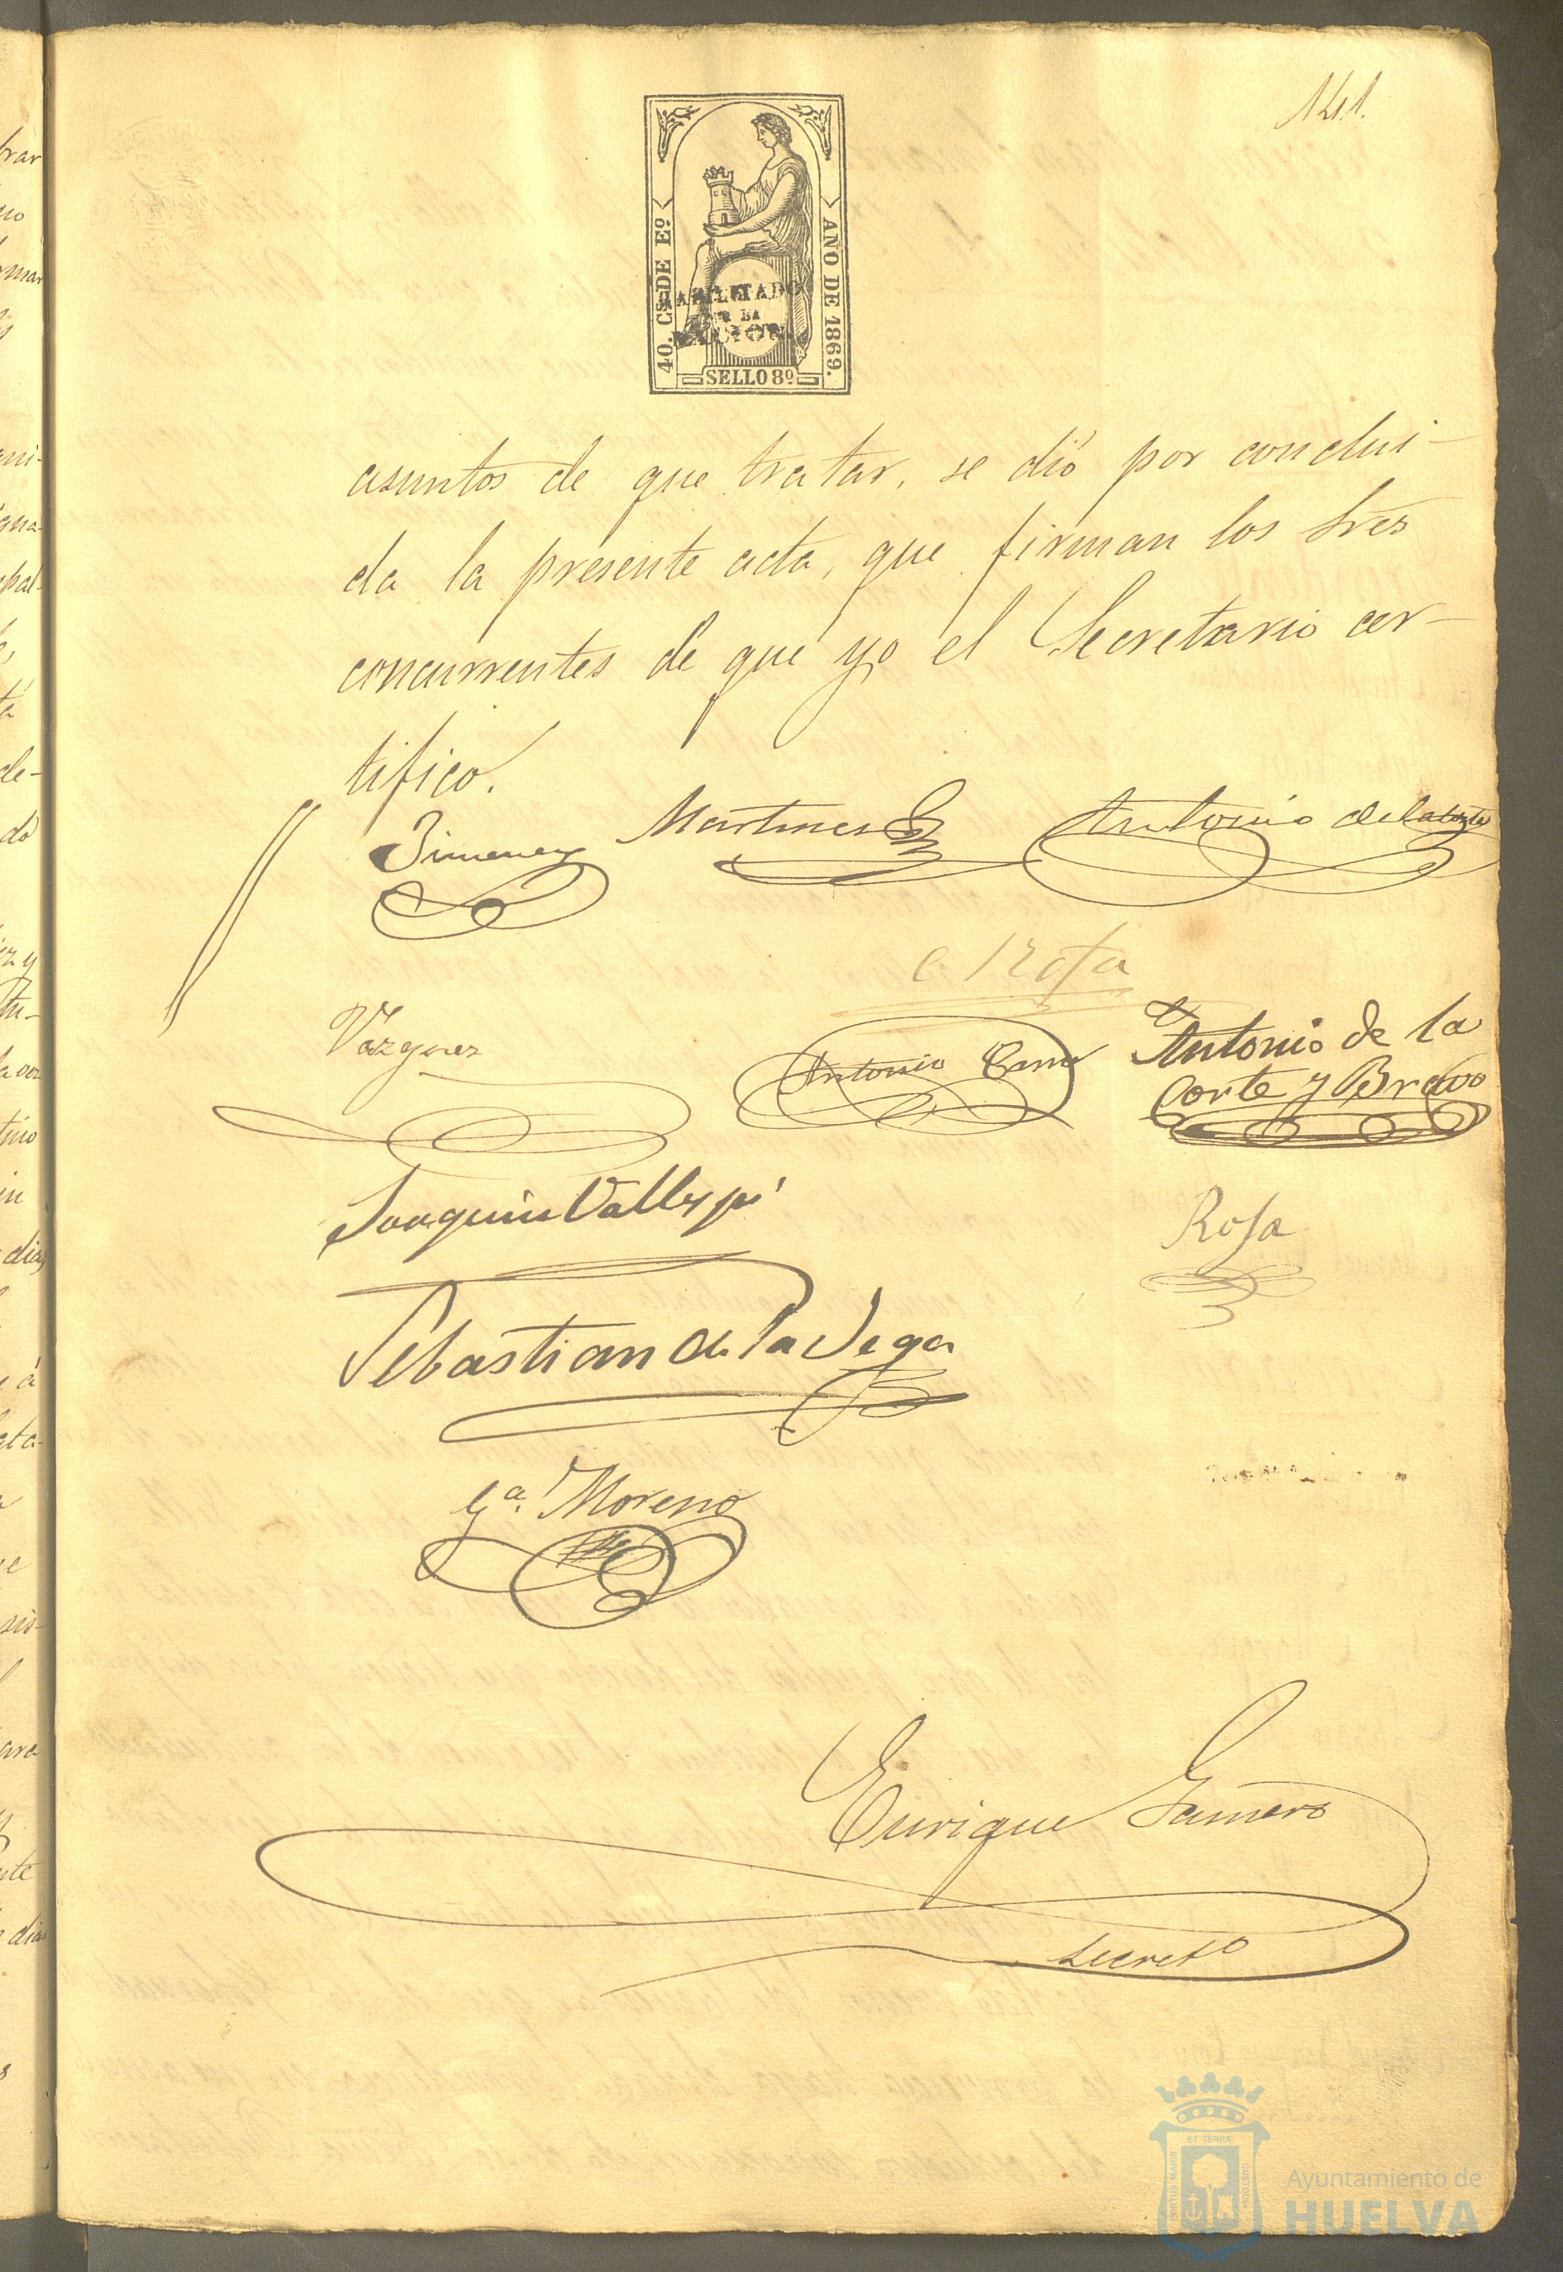 141.
40. Cs. DE Eº
AÑO DE 1869.
HABILITADO
POR LA
NACION
SELLO 8º
asuntos de que tratar, se dió por conclui-
da la presente acta, que firman los Sres
concurrentes de que yo el Secretario cer-
tifico.
Jimenez
Martinez
Antonio de la Corte
C. Rosa
Vazquez
Antonio
Antonio de la
Corte y Bravo
Joaquin Vallespi
Rosa
Sebastian de la Vega
Gª Moreno
Enrique Gamero
Secretº
ET TERRÆ
PORTUS MARIS
CUSTODIA
Ayuntamiento de
HUELVA